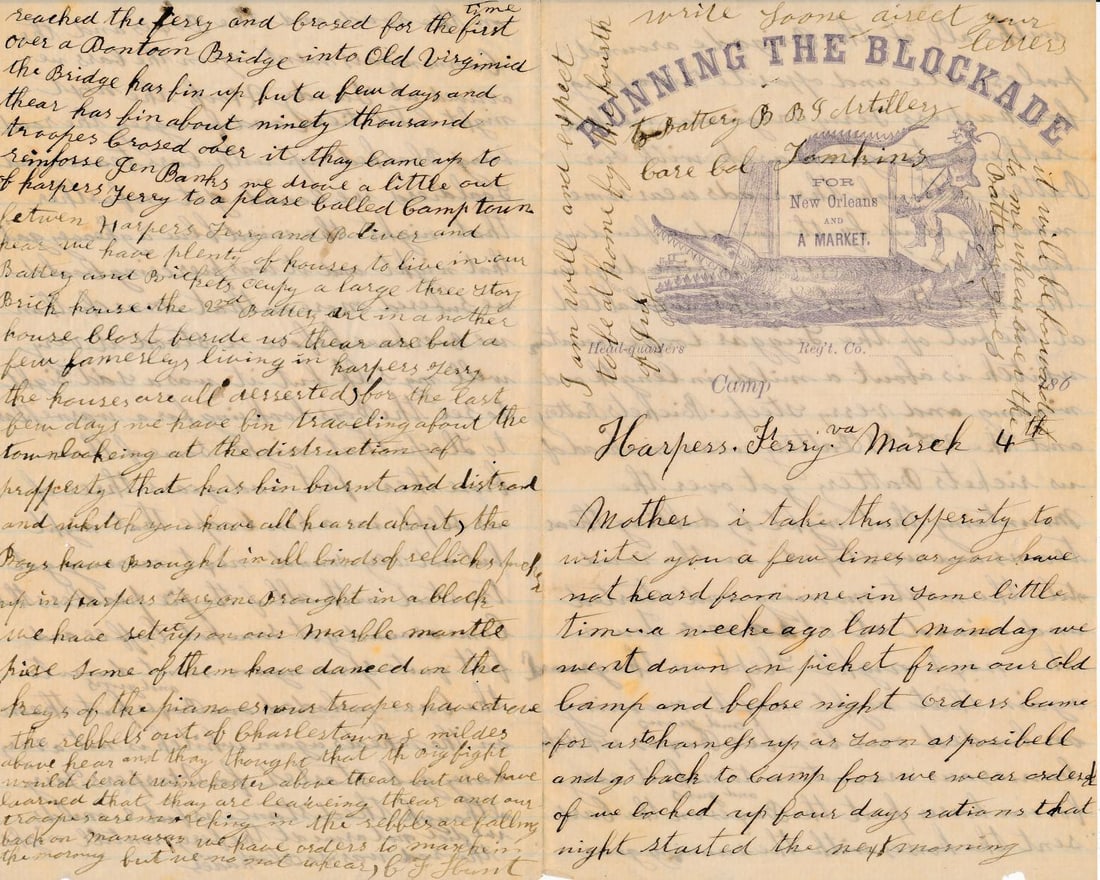 write soone direct your
letters
RUNNING THE BLOCKADE
to Battery B R I Artillery
care Col Tomkins
FOR
New Orleans
AND
A MARKET.
Head-quarters Reg't. Co.
Camp 186
I am well and expect
to be at home by the fourth
it will be forwarded
to me whear ever the
Battery goes
Harpers. Ferry. va March 4th
Mother i take this opperisty to
write you a few lines as you have
not heard from me in some little
time a weeke ago last monday we
went down on picket from our old
Camp and before night orders came
for us to harness up as soon as posibell
and go back to Camp for we wear orderd
of we cocked up four days rations that
night started the next morning
reached the ferry and crosed for the first time
over a Pontoon Bridge into Old Virginia
the Bridge has bin up but a few days and
thear has bin about ninety thousand
troopes crosed over it thay came up to
reinforse Jen Banks we drove a little out
of harpers Ferry to a plase called Camptown
betwen Harpers Ferry and Boliver and
hear we have plenty of houses to live in our
Battery and Brickets ocupy a large three story
Brick house the 2nd Battery are in another
house clost beside us thear are but a
few famerleys living in harpers ferry
the houses are all desserted, for the last
few days we have bin traveling about the
town lookeing at the distruction of
propperty that has bin burnt and distroed
and whitch you have all heard about, the
Boys have Brought in all kinds of rellicks picken
up in harpers ferry one Brought in a clock
we have set it up on our marble mantle
piese some of them have danced on the
keeys of the pianoes, our troopes have drove
the rebbels out of Charlestown 8 miles
above hear and thay thought that the big fight
would be at winchester above thear but we have
learned that thay are leaveing thear and our
troopes are marching in the rebbls are falling
back on manasas we have orders to march in
the morning but we no not whear, C F Hunt